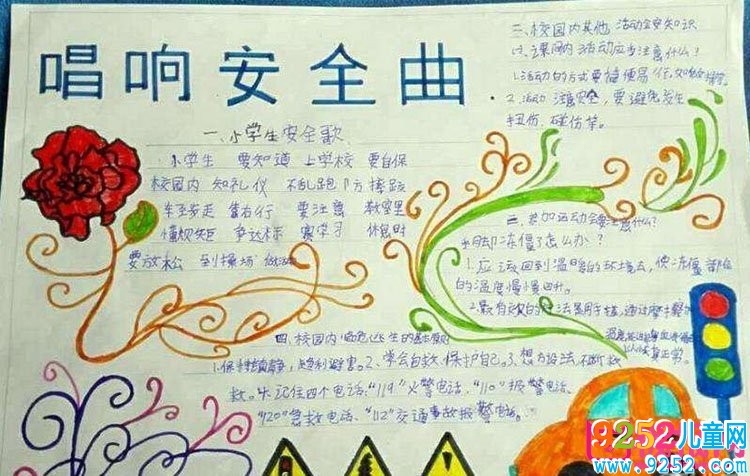 唱响安全曲
一、小学生安全歌
小学生 要知道 上学校 要自保
校园内 知礼仪 不乱跑 防摔跤
车多走 靠右行 要注意 教室里
懂规矩 争达标 实学习 休息时
要放松 到操场 做
三、校园内其他活动安知识
课间活动应当注意什么?
1.活动的方式要简便易行,如做操等。
2.活动 注意安全,要避免发生
扭伤、碰伤等。
二、参加运动会要注意什么?
手脚冻僵了怎么办?
1.应该回到温暖的环境去,使冻僵部位
的温度慢慢回升。
2.最有效的方法是用手搓,通过摩擦
四、校园内危急逃生的基本原则
1.保持镇静,趋利避害。2、学会自救,保护自己。3、想方设法,不断求
救。4、记住四个电话:“119”火警电话、“110”报警电话、
“120”急救电话、“112”交通事故报警电话。
9252儿童网
www.9252.com